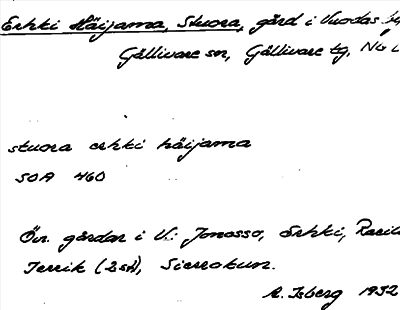 Erhki Häijama, Stuora, gård i Vuodas by,
Gällivare sn, Gällivare tg, Nb L
stuora erhki häijama
SOA 460
Övr. gårdar i V.: Jonasso, Erhki,
Jerrik (2 st), Sierrokun.
A. Isberg 1932